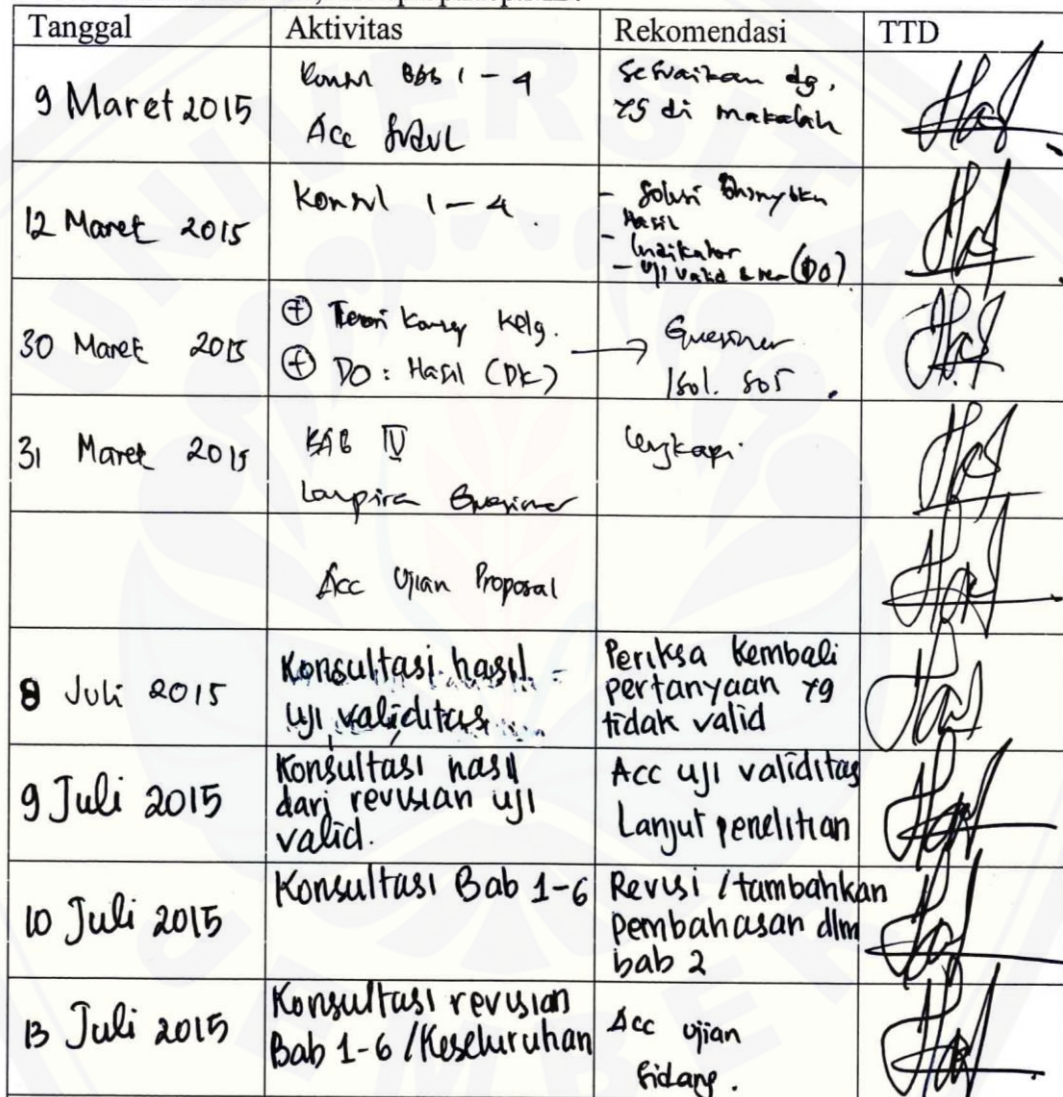 Tanggal Aktivitas Rekomendasi TTD
9 Maret 2015
Konsul Bab 1 - 4
Acc Judul
Sesuaikan dg.
yg di makalah
12 Maret 2015
Konsul 1 - 4.
- Solusi
Hasil
- Indikator
- Uji valid & (DO)
30 Maret 2015
+ Teori Kelg.
+ DO: Hasil (DK) →
31 Maret 2015
BAB IV
Lengkapi
Acc Ujian Proposal
8 Juli 2015
Konsultasi hasil
uji validitas
Periksa kembali
pertanyaan yg
tidak valid
9 Juli 2015
Konsultasi hasil
dari revisian uji
valid.
Acc uji validitas
Lanjut penelitian
10 Juli 2015
Konsultasi Bab 1-6
Revisi / tambahkan
pembahasan dlm
bab 2
13 Juli 2015
Konsultasi revisian
Bab 1-6 / Keseluruhan
Acc ujian
Sidang.